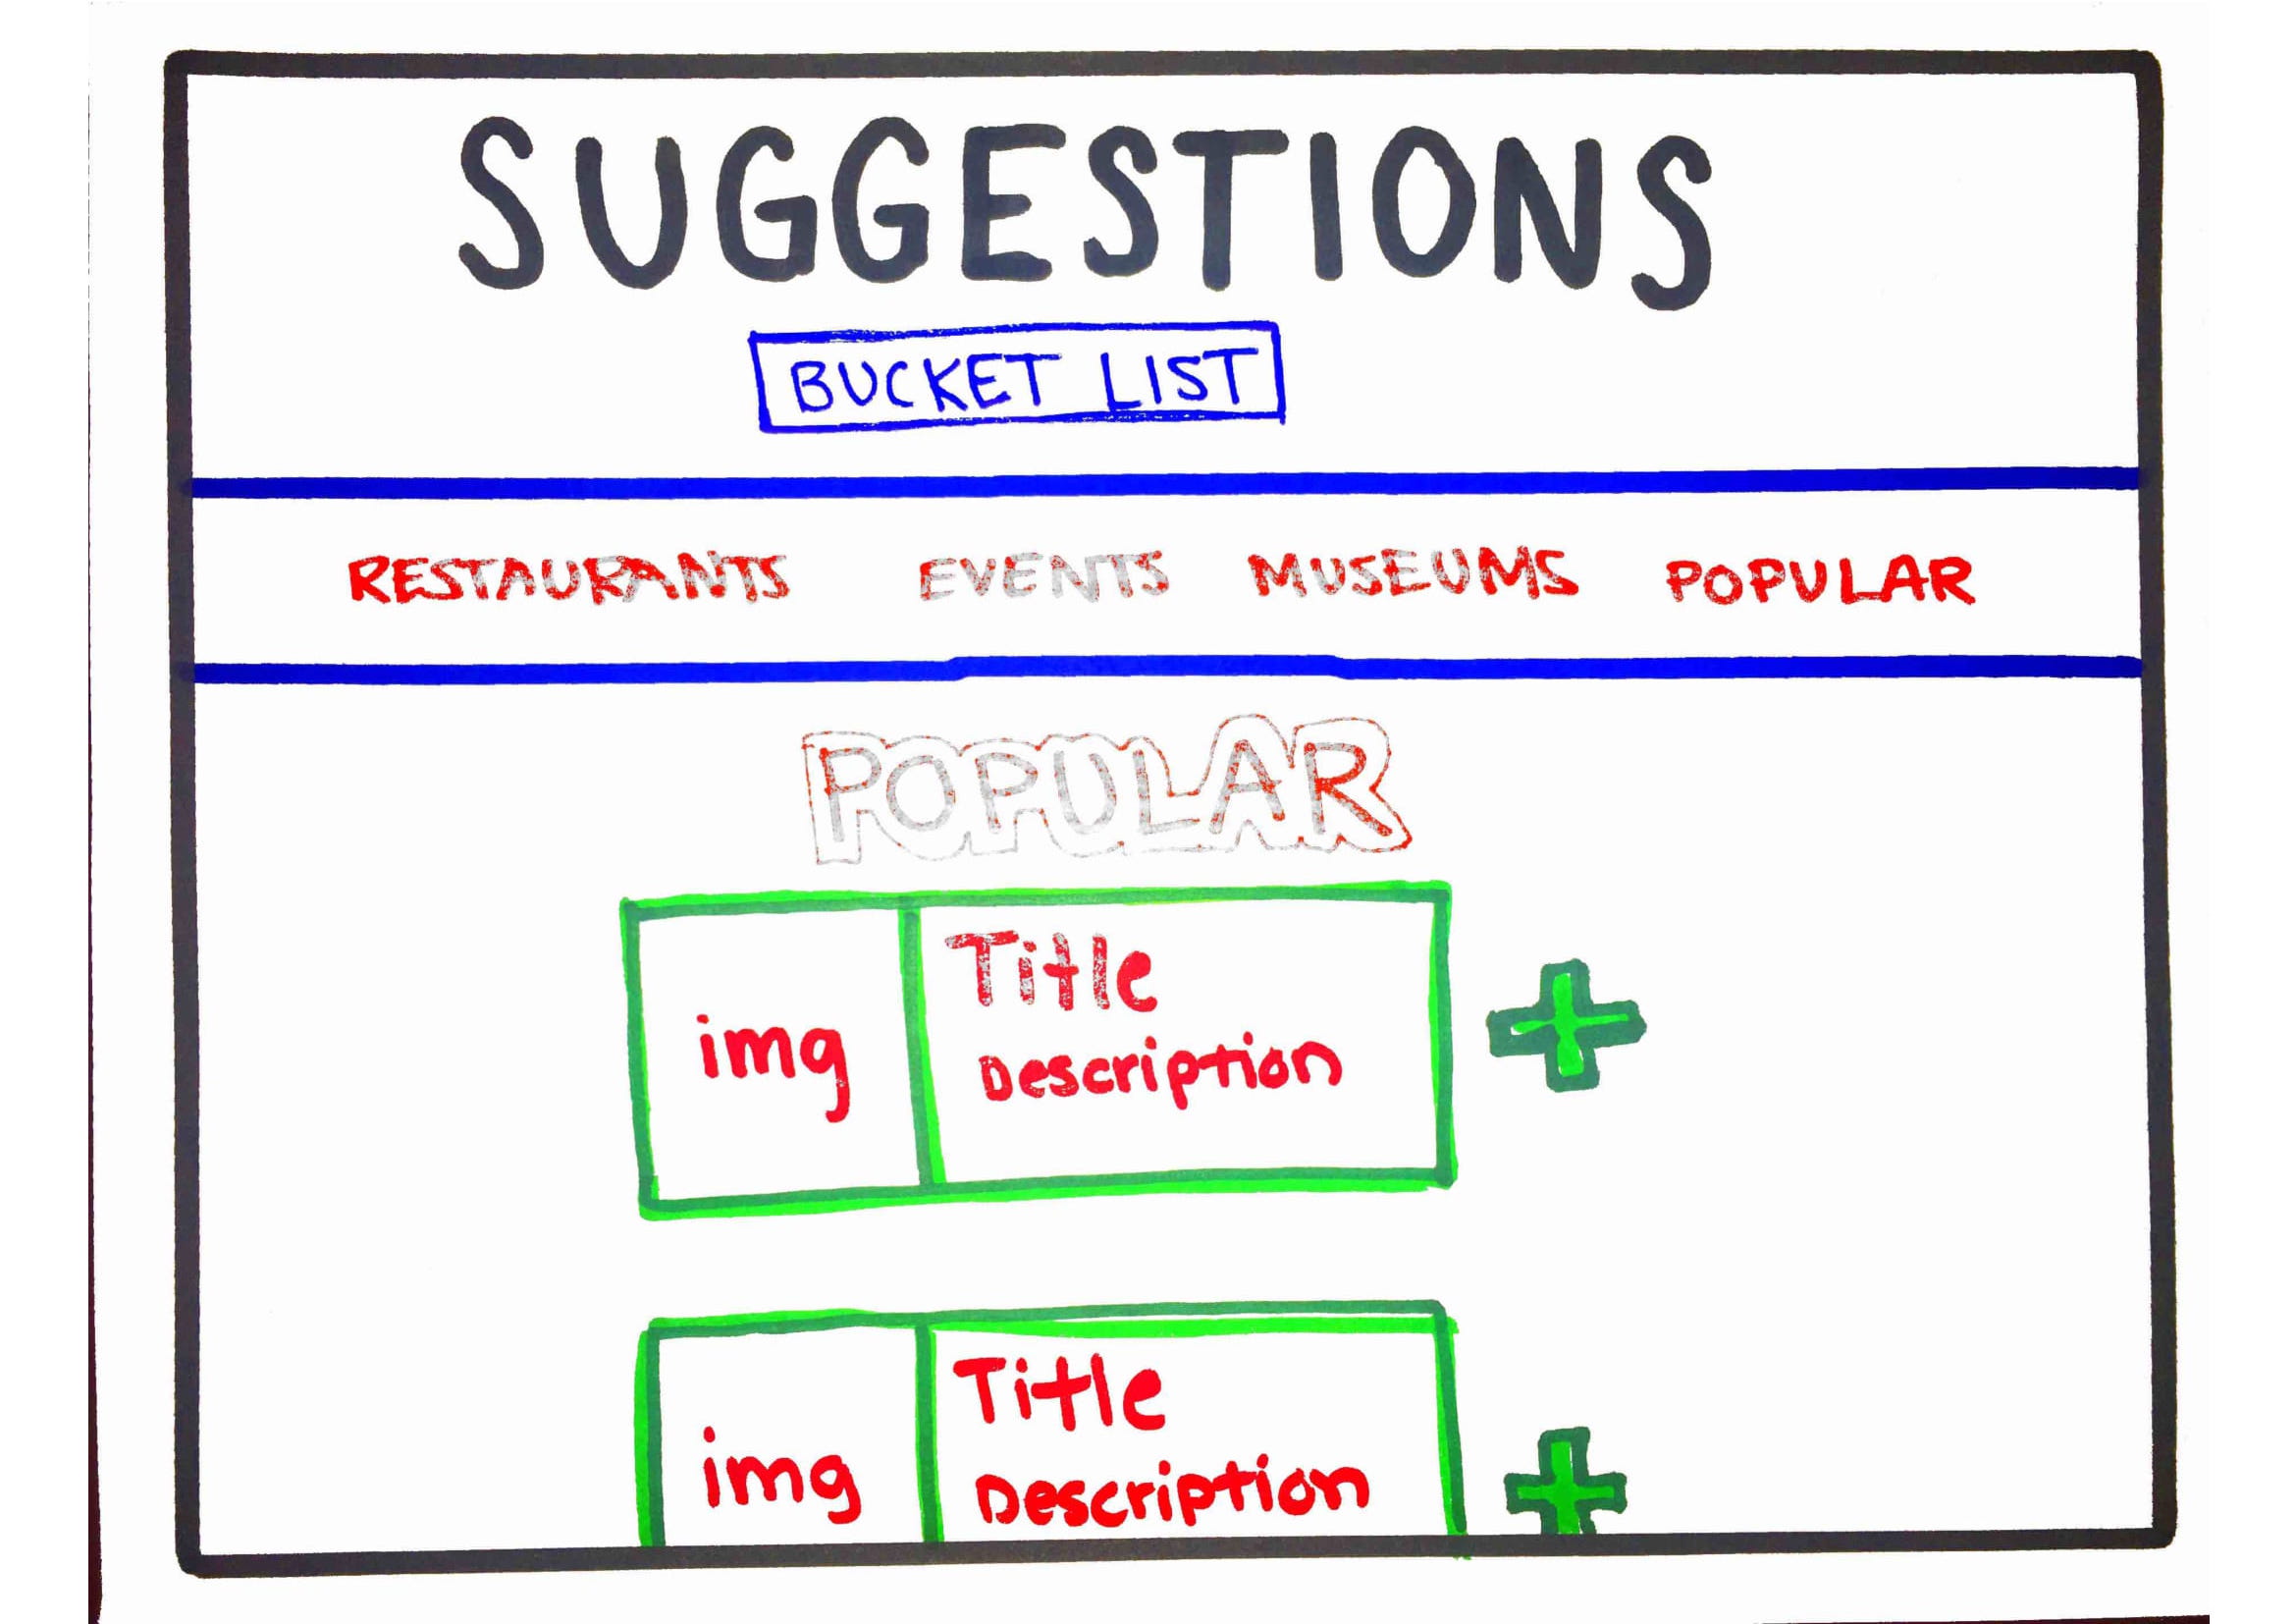 SUGGESTIONS
BUCKET LIST
RESTAURANTS EVENTS MUSEUMS POPULAR
POPULAR
Title
img
Description
Title
img
Description